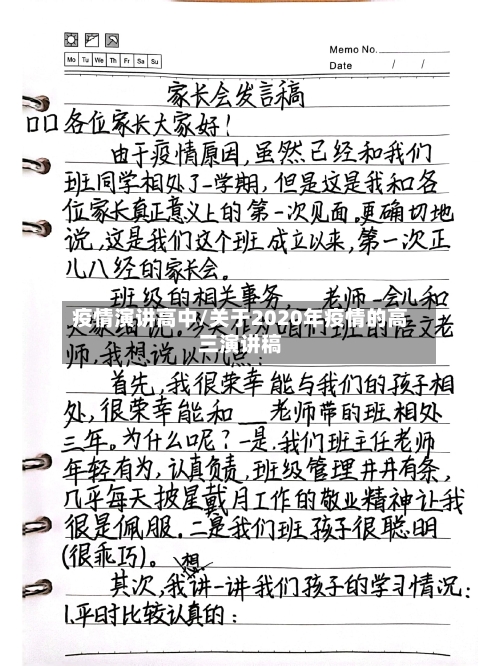 Memo No.
Mo Tu We Th Fr Sa Su
Date / /
家长会发言稿
口口各位家长大家好!
由于疫情原因,虽然已经和我们
班同学相处了一学期,但是这是我和各
位家长真正意义上的第一次见面。更确切地
说,这是我们这个班成立以来,第一次正
儿八经的家长会。
班级的相关事务, 老师一会儿和
疫情演讲高中/关于2020年疫情的高
三演讲稿
师,我想说以几点:
首先,我很荣幸能与我们的孩子相
处,很荣幸能和__老师带的班相处
三年。为什么呢?一是,我们班主任老师
年轻有为,认真负责,班级管理井井有条,
几乎每天披星戴月工作的敬业精神让我
很是佩服。二是我们班孩子很聪明
(很乖巧)。 想
其次,我讲一讲我们孩子的学习情况:
1.平时比较认真的: